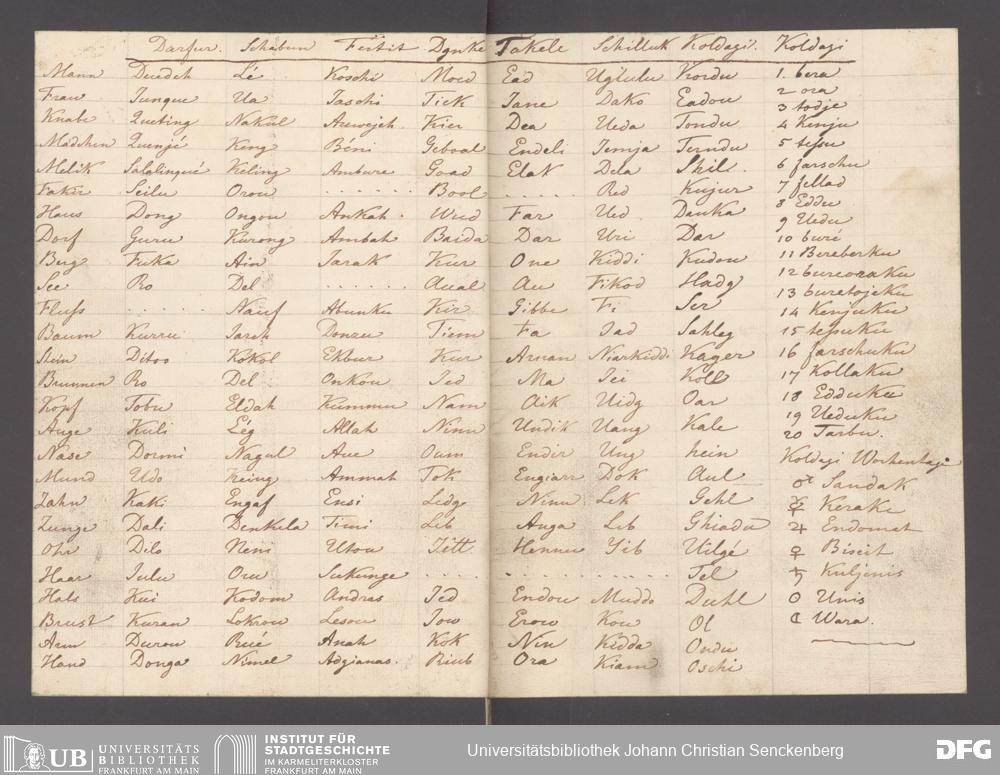 Darfur. Schabun Fertit Dynke Takele Schilluk Koldagi. Koldagi
Mann Duedeh Lé Koschi Moed Ead Uglulu Kordu 1. bera
Frau Junque Ua Taschi Tick Jane Dako Eadou 2 ora
Knabe Queting Nakul Arewejeh. Kier Dea Ueda Tondu 3 todje
Mädchen Quenjé Keng Béni Geboal Endeli Temja Terndu 4 Kenju
Melik Salalingué Keling Ambure Goad Elak Dela Skil. 5 tessu
Fakir Seilu Orou . . . . . . Bool . . . . . Red Kujur 6 farschu
Haus Dong Ongou Ankah. Wud Far Ued Danka 7 fellad
Dorf Guru Kurong Ambah Baida Dar Uri Dar 8 Eddu
Berg Fuka Ain Tarak Kur One Kiddi Kudou 9 Uedu
See Ro Del . . . . . . Aual Au Fikod Hadg 10 buré
Fluſs . . . . . . Nauf Abunku Kir Gibbe Fi Ser 11 Bureberku
Baum Kurru Jareh Donzu Tiem Fa Jad Sahleg 12 bureoraku
Stein Ditoo Kokol Ekbur Kur Arnan Niarkiddi Kager 13 buretojeku
Brunnen Ro Del Onkou Jed Ma Jei Koll 14 Kenjuku
Kopf Tobu Eldah Kummu Nam Aik Uidg Oar 15 tesuku
Auge Kuli Lég Allah Ninn Undik Uang Kale 16 farschuku
Nase Dormi Nagul Aue Oum Endir Ung hein 17 Kollaku
Mund Udo Keing Ammah Tok Engiarr Dok Aul 18 Edduku
Zahn Kaki Engaf Ensi Ledg Ninn Lek Gehl 19 Ueduku
Zunge Dali Denkela Timi Lib Auga Leb Ghiadu 20 Tarbu.
Ohr Dilo Neni Utou Jitt Hennu Yib Uilgé Koldagi Wochentage
Haar Julu Oru Sukunge . . . . . . . . . . . . Tel ♂ Sandak
Hals Kui Kodom Andras Jed Endou Muddo Duhl ☿ Kerake
Brust Kuran Lokrou Lesou Jow Erow Kou Ol ♃ Endomat
Arm Durou Rué Anah Kok Nin Kidda Ondu ♀ Biseit
Hand Donga Nimel Adgianas. Riub Ora Kiam Oschi ♄ Kuljenis
O Unis
☾ Wara.
UB UNIVERSITÄTS BIBLIOTHEK FRANKFURT AM MAIN
INSTITUT FÜR STADTGESCHICHTE IM KARMELITERKLOSTER FRANKFURT AM MAIN
Universitätsbibliothek Johann Christian Senckenberg
DFG